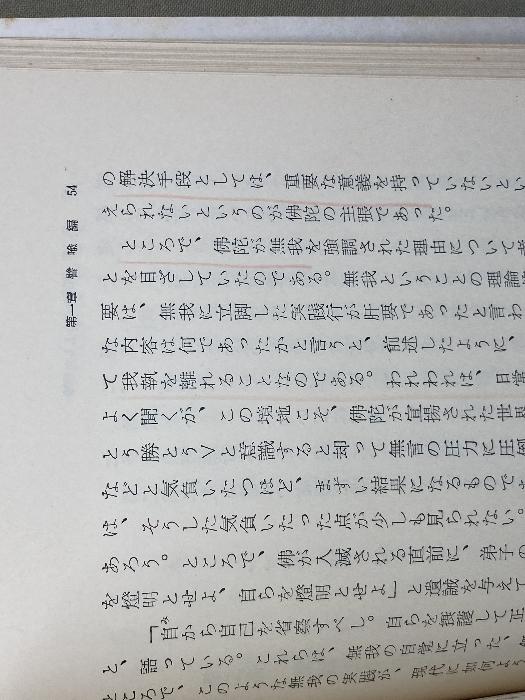 54
第一篇 譬喩篇
の解決手段としては、重要な意義を持っていないとい
えられないというのが佛陀の主張であった。
ところで、佛陀が無我を強調された理由について考
とを目ざしていたのである。無我ということの理論
要は、無我に立脚した実践行が肝要であったと言わ
な内容は何であったかと言うと、前述したように、
て我執を離れることなのである。われわれは、日常
よく聞くが、この境地こそ、佛陀が宣揚された世
とう勝とう〵と意識すると却って無言の圧力に圧倒
などと気負いたつほど、まずい結果になるものであ
は、そうした気負いたった点が少しも見られない。
あろう。ところで、佛が入滅される直前に、弟子の
を燈明とせよ、自らを燈明とせよ」と遺誡を与えて
「自から自己を省察すべし。自らを救護して正
と、語っている。これらは、無我の自覚に立った、
ところで、このような無我の実践が、現代に如何よう